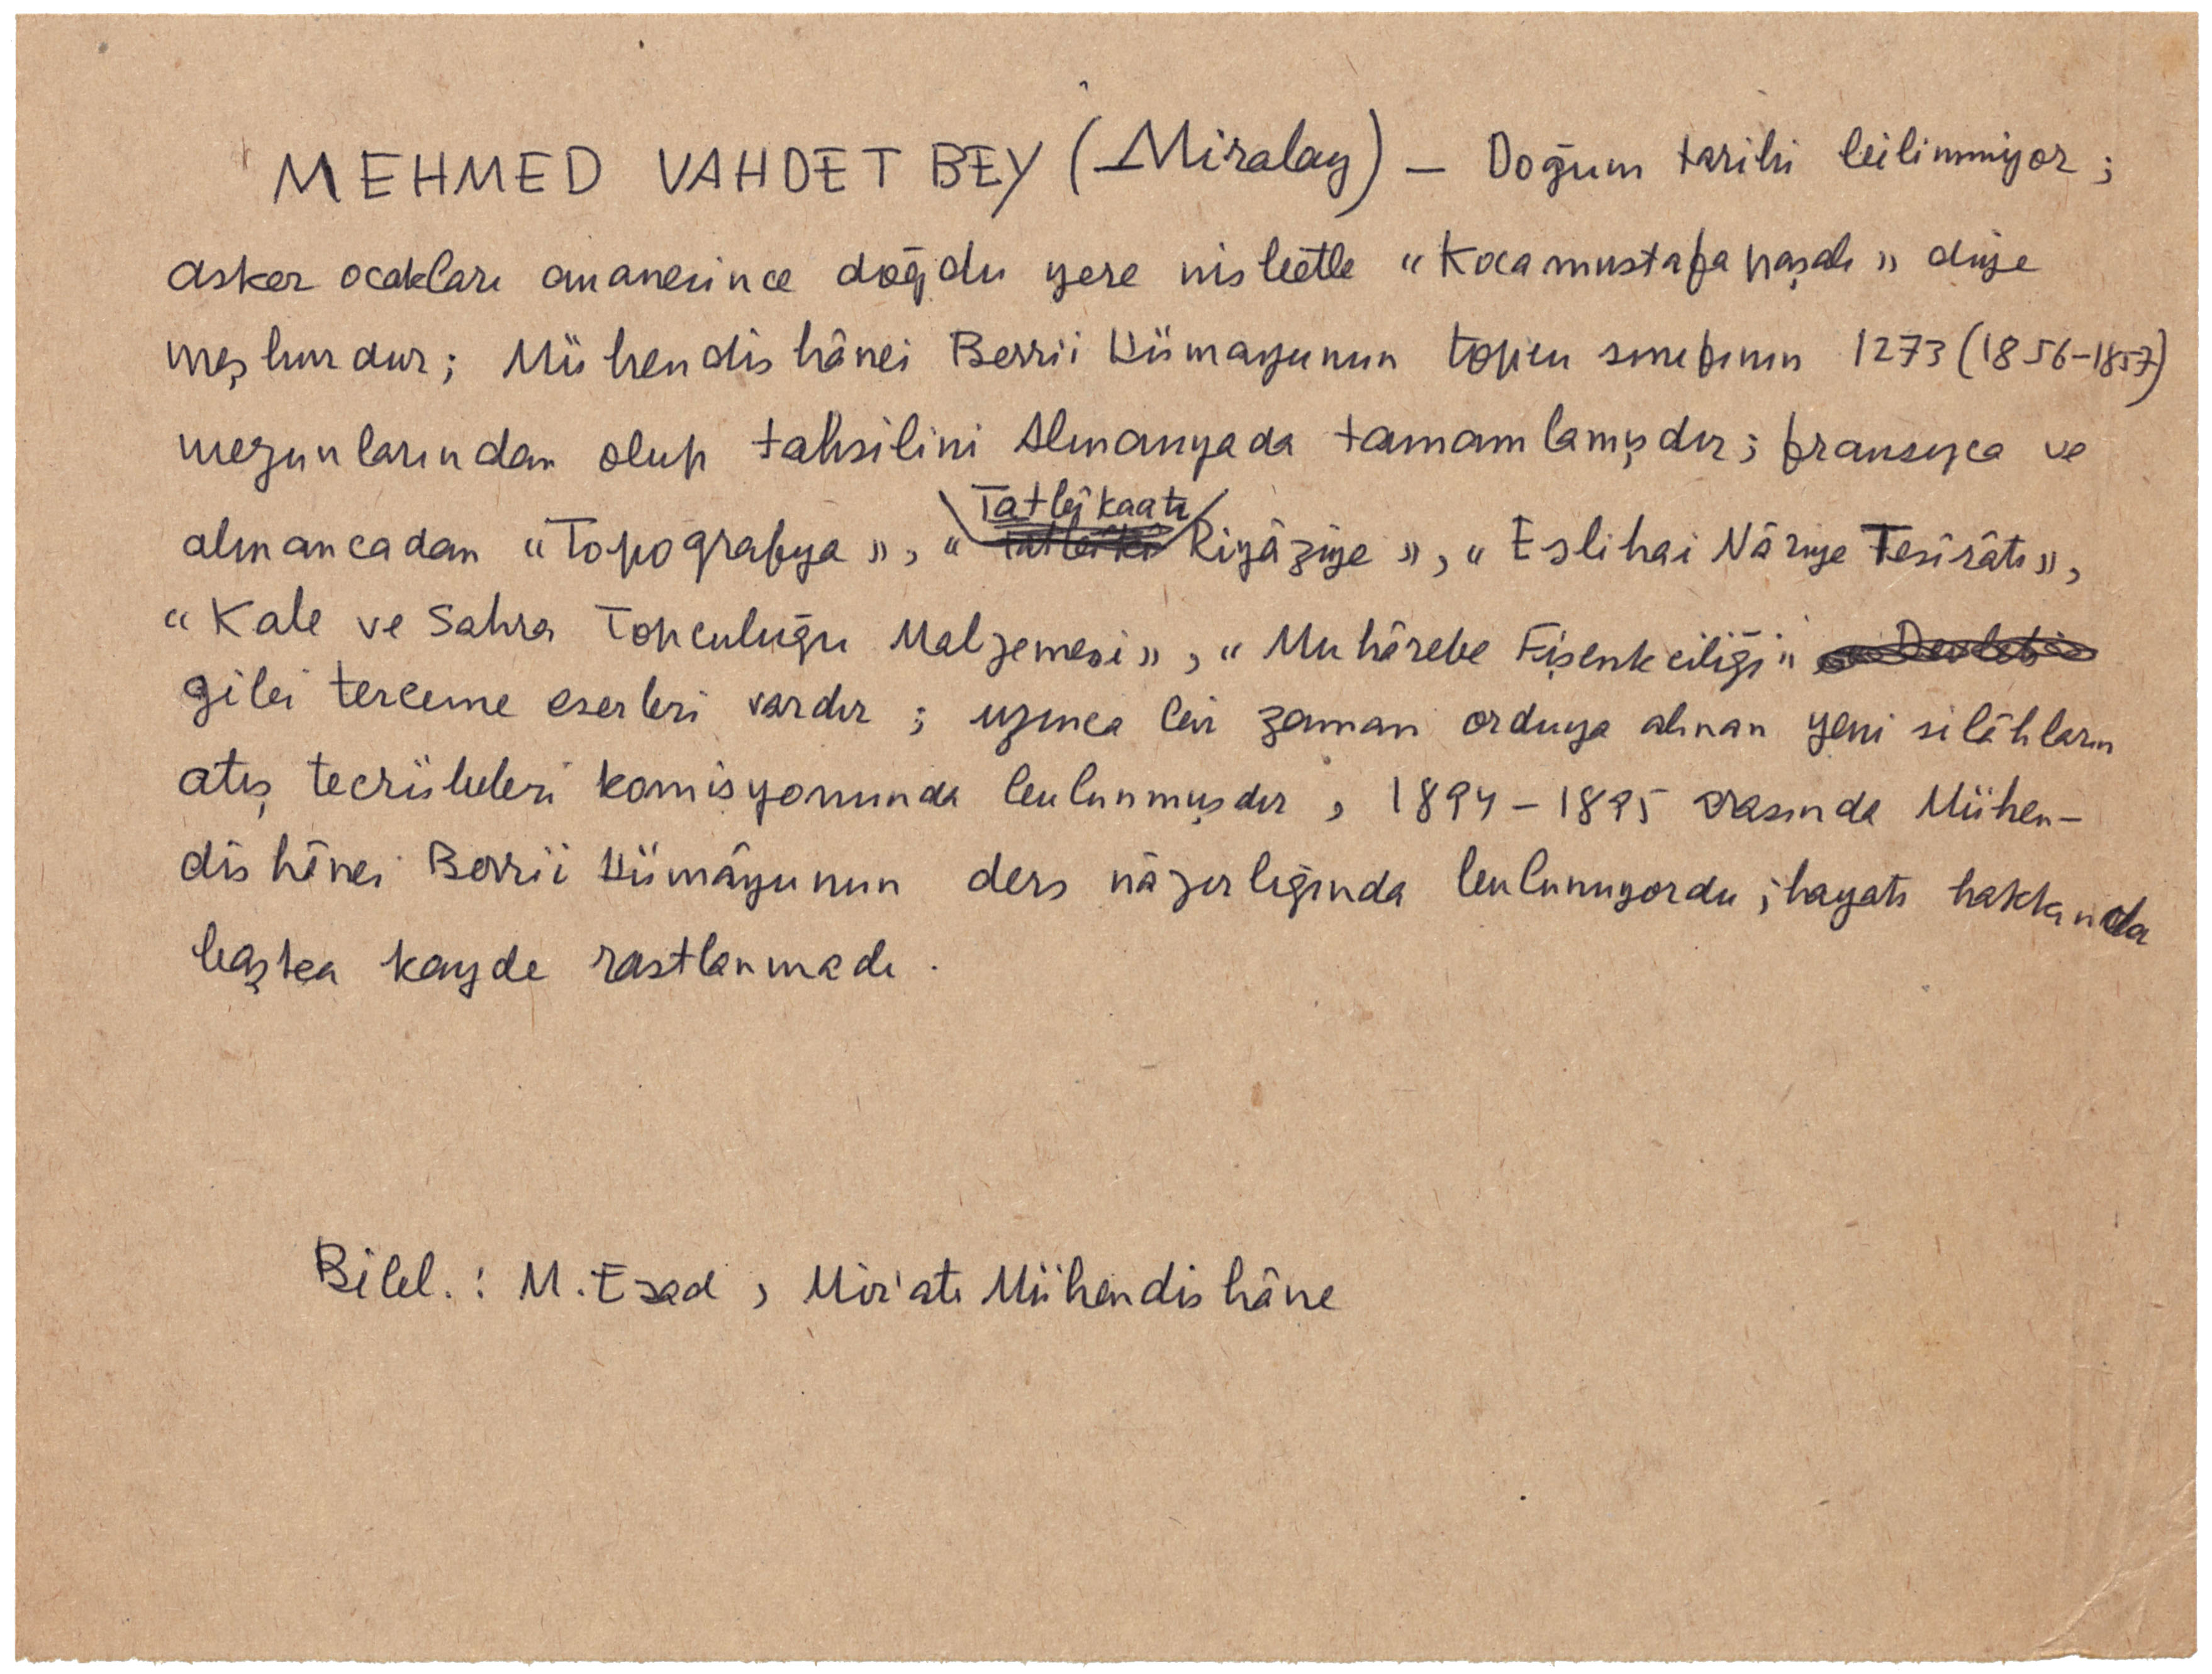 MEHMED VAHDET BEY (Miralay) — Doğum tarihi bilinmiyor ;
asker ocakları ananesince doğdu yere nisbetle "Kocamustafapaşalı" diye
meşhurdur; Mühendishânei Berrii Hümayunun topcu sınıfının 1273 (1856-1857)
mezunlarından olup tahsilini Almanyada tamamlamışdır; fransızca ve
Tatbîkaatı
almancadan "Topografya", " Riyâziye", "Eslihai Nâriye Tesîrâtı",
"Kale ve Sahra Topculuğu Malzemesi", "Muhârebe Fişenkciliği"
gibi terceme eserleri vardır ; uzunca bir zaman orduya alınan yeni silâhların
atış tecrübeleri komisyonunda bulunmuşdır , 1894 - 1895 arasında Mühen-
dishânei Berrii Hümâyunun ders nâzırlığında bulunuyordu ; hayatı hakkında
başka kayde rastlanmadı .
Bibl. : M. Esad , Mir'atı Mühendishâne